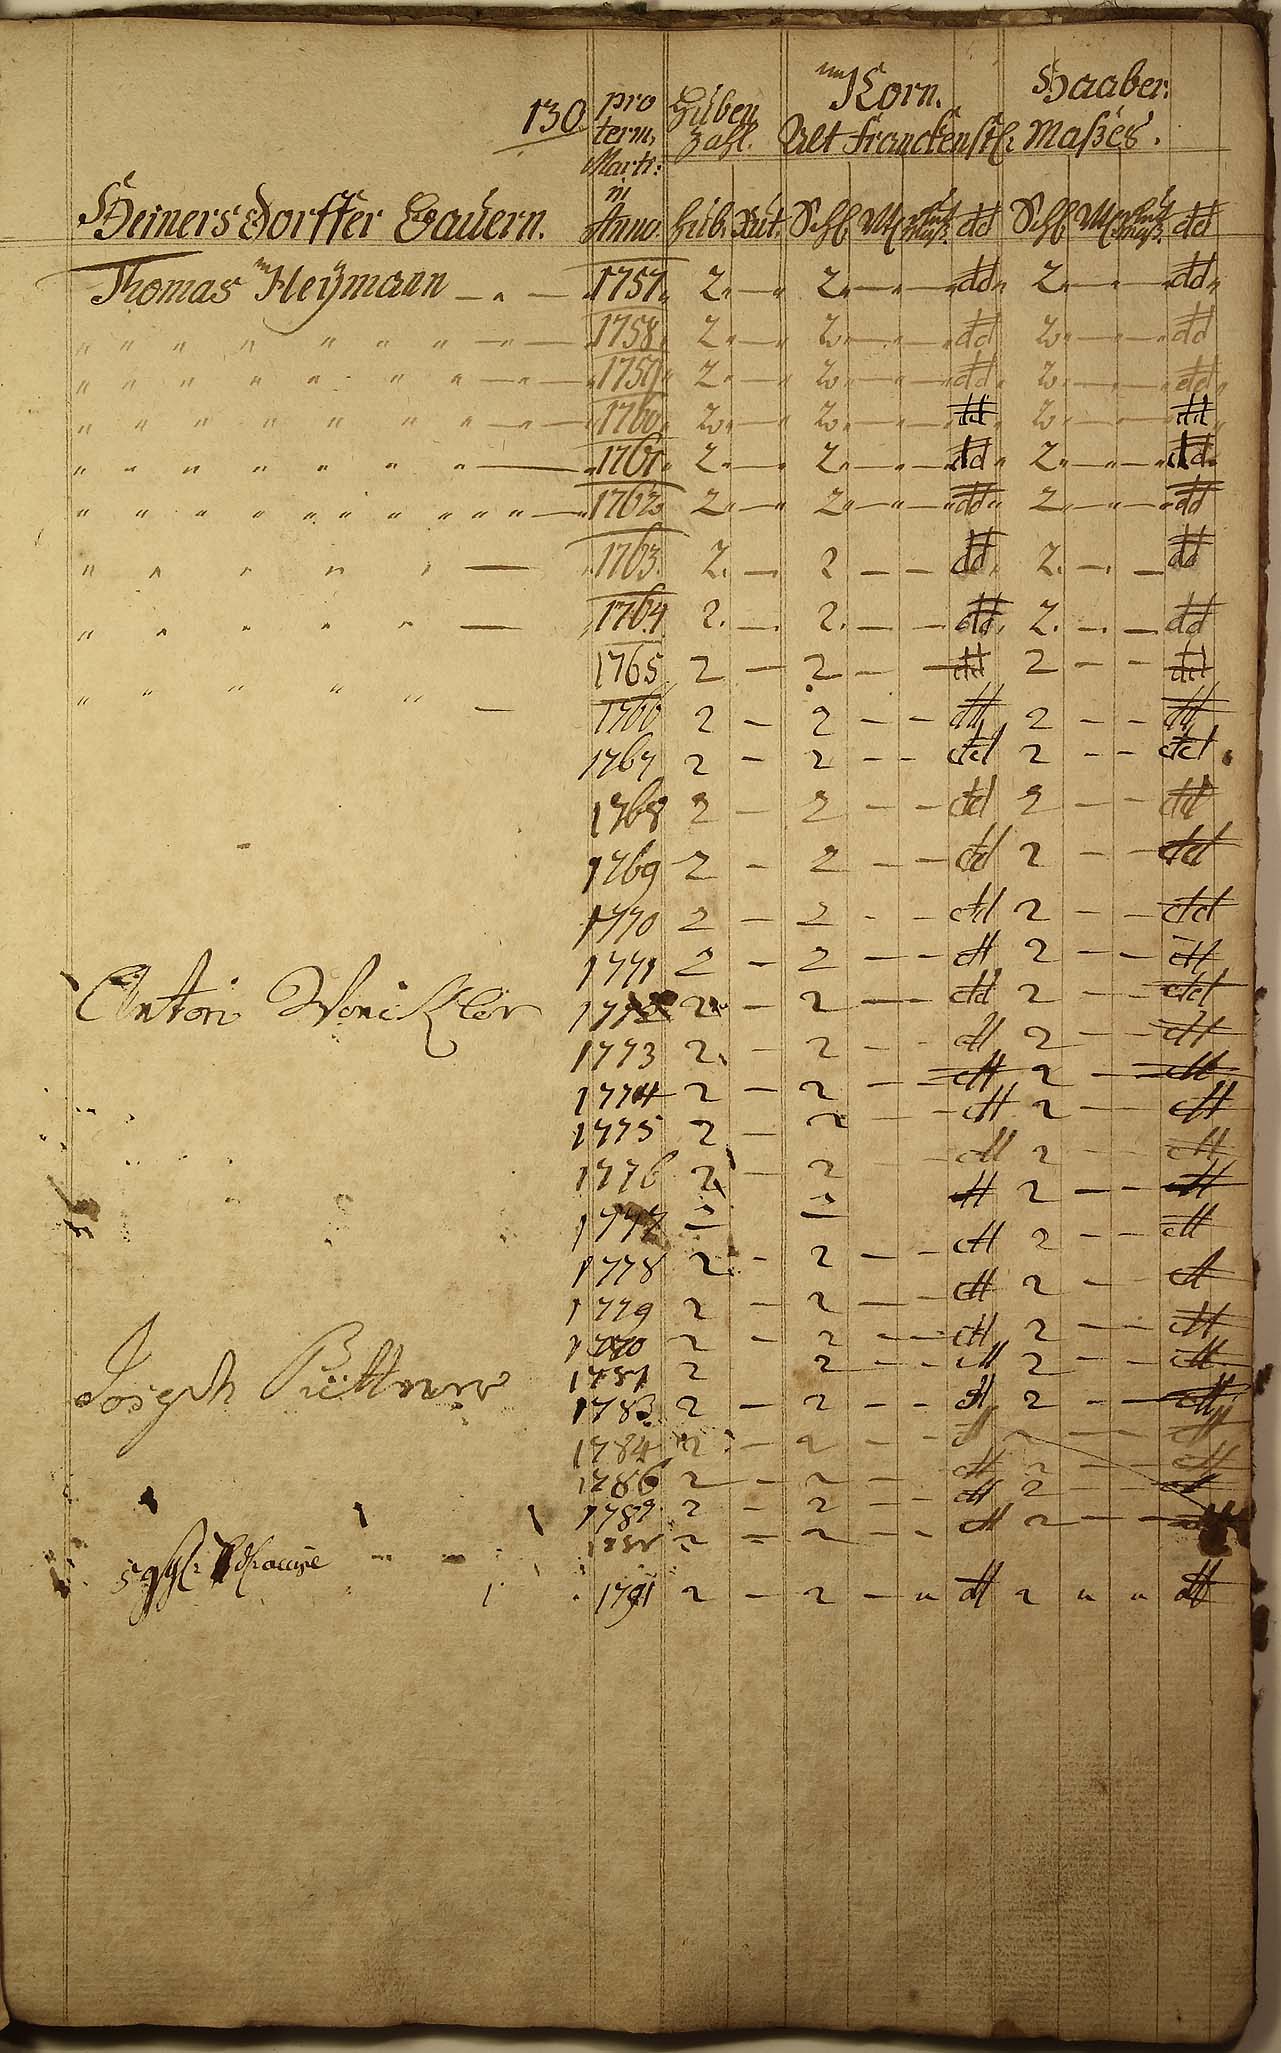 130 pro Huben Korn. Haaber.
term. Zahl. Alt Franckenst: Maßes.
Marti:
ni
Heinersdorffer Bauern. Anno. Hub. Rut. Schl. dd Schl. dd
Thomas Heÿmann — " — 1757. 2 " — " 2 " — " — " dd " 2 " — " — " dd "
" " " " " " " — " — 1758. 2 " — " 2 " — " — " dd 2 " — " — " dd
" " " " " " " — " — 1759 2 " — " 2 " — " — " dd " 2 " — " — " dd "
" " " " " " " " — " — 1760. 2 " — " 2 " — " — " dd 2 " — " — dd "
" " " " " " " — 1761. 2 " — " 2 " — " — " dd " 2 " — " — " dd "
" " " " " " " " " " " — 1762 2 " — " 2 " — " — " dd " 2 " — " — " dd
" " " " " — 1763. 2. — 2 — — dd. 2. — . — dd
" " " " " — 1764 2. — 2. — — dd. 2. — . — dd
" " " " " — 1765 2 — 2 — — dd 2 — — dd
1766 2 — 2 — — dd 2 — — dd
1767 2 — 2 — — dd 2 — — dd
1768 2 — 2 — — dd 2 — — dd
1769 2 — 2 — — dd 2 — — dd
1770 2 — 2 — — dd 2 — — dd
1771 2 — 2 — — dd 2 — — dd
Anton 2 — 2 — — dd 2 — — dd
1773 2. — 2 — — dd 2 — — dd
1774 2 — 2 — — dd 2 — — dd
1775 2 — 2 — — dd 2 — — dd
1776 2 — 2 — — dd 2 — — dd
1777 2 — 2 — — dd 2 — — dd
1778 2 — 2 — — dd 2 — — dd
1779 2 — 2 — — dd 2 — — dd
2 — 2 — — dd 2 — — dd
Joseph 1781 2 2 — — dd 2 — — dd
1783. 2 — 2 — — dd 2 — — dd
1784 2 — 2 — — dd 2 — — dd
1786 2 — 2 — — dd 2 — — dd
2 — 2 — — dd 2 — — dd
2 — 2 — — dd 2 — —
1791 2 — 2 — " dd 2 " " dd